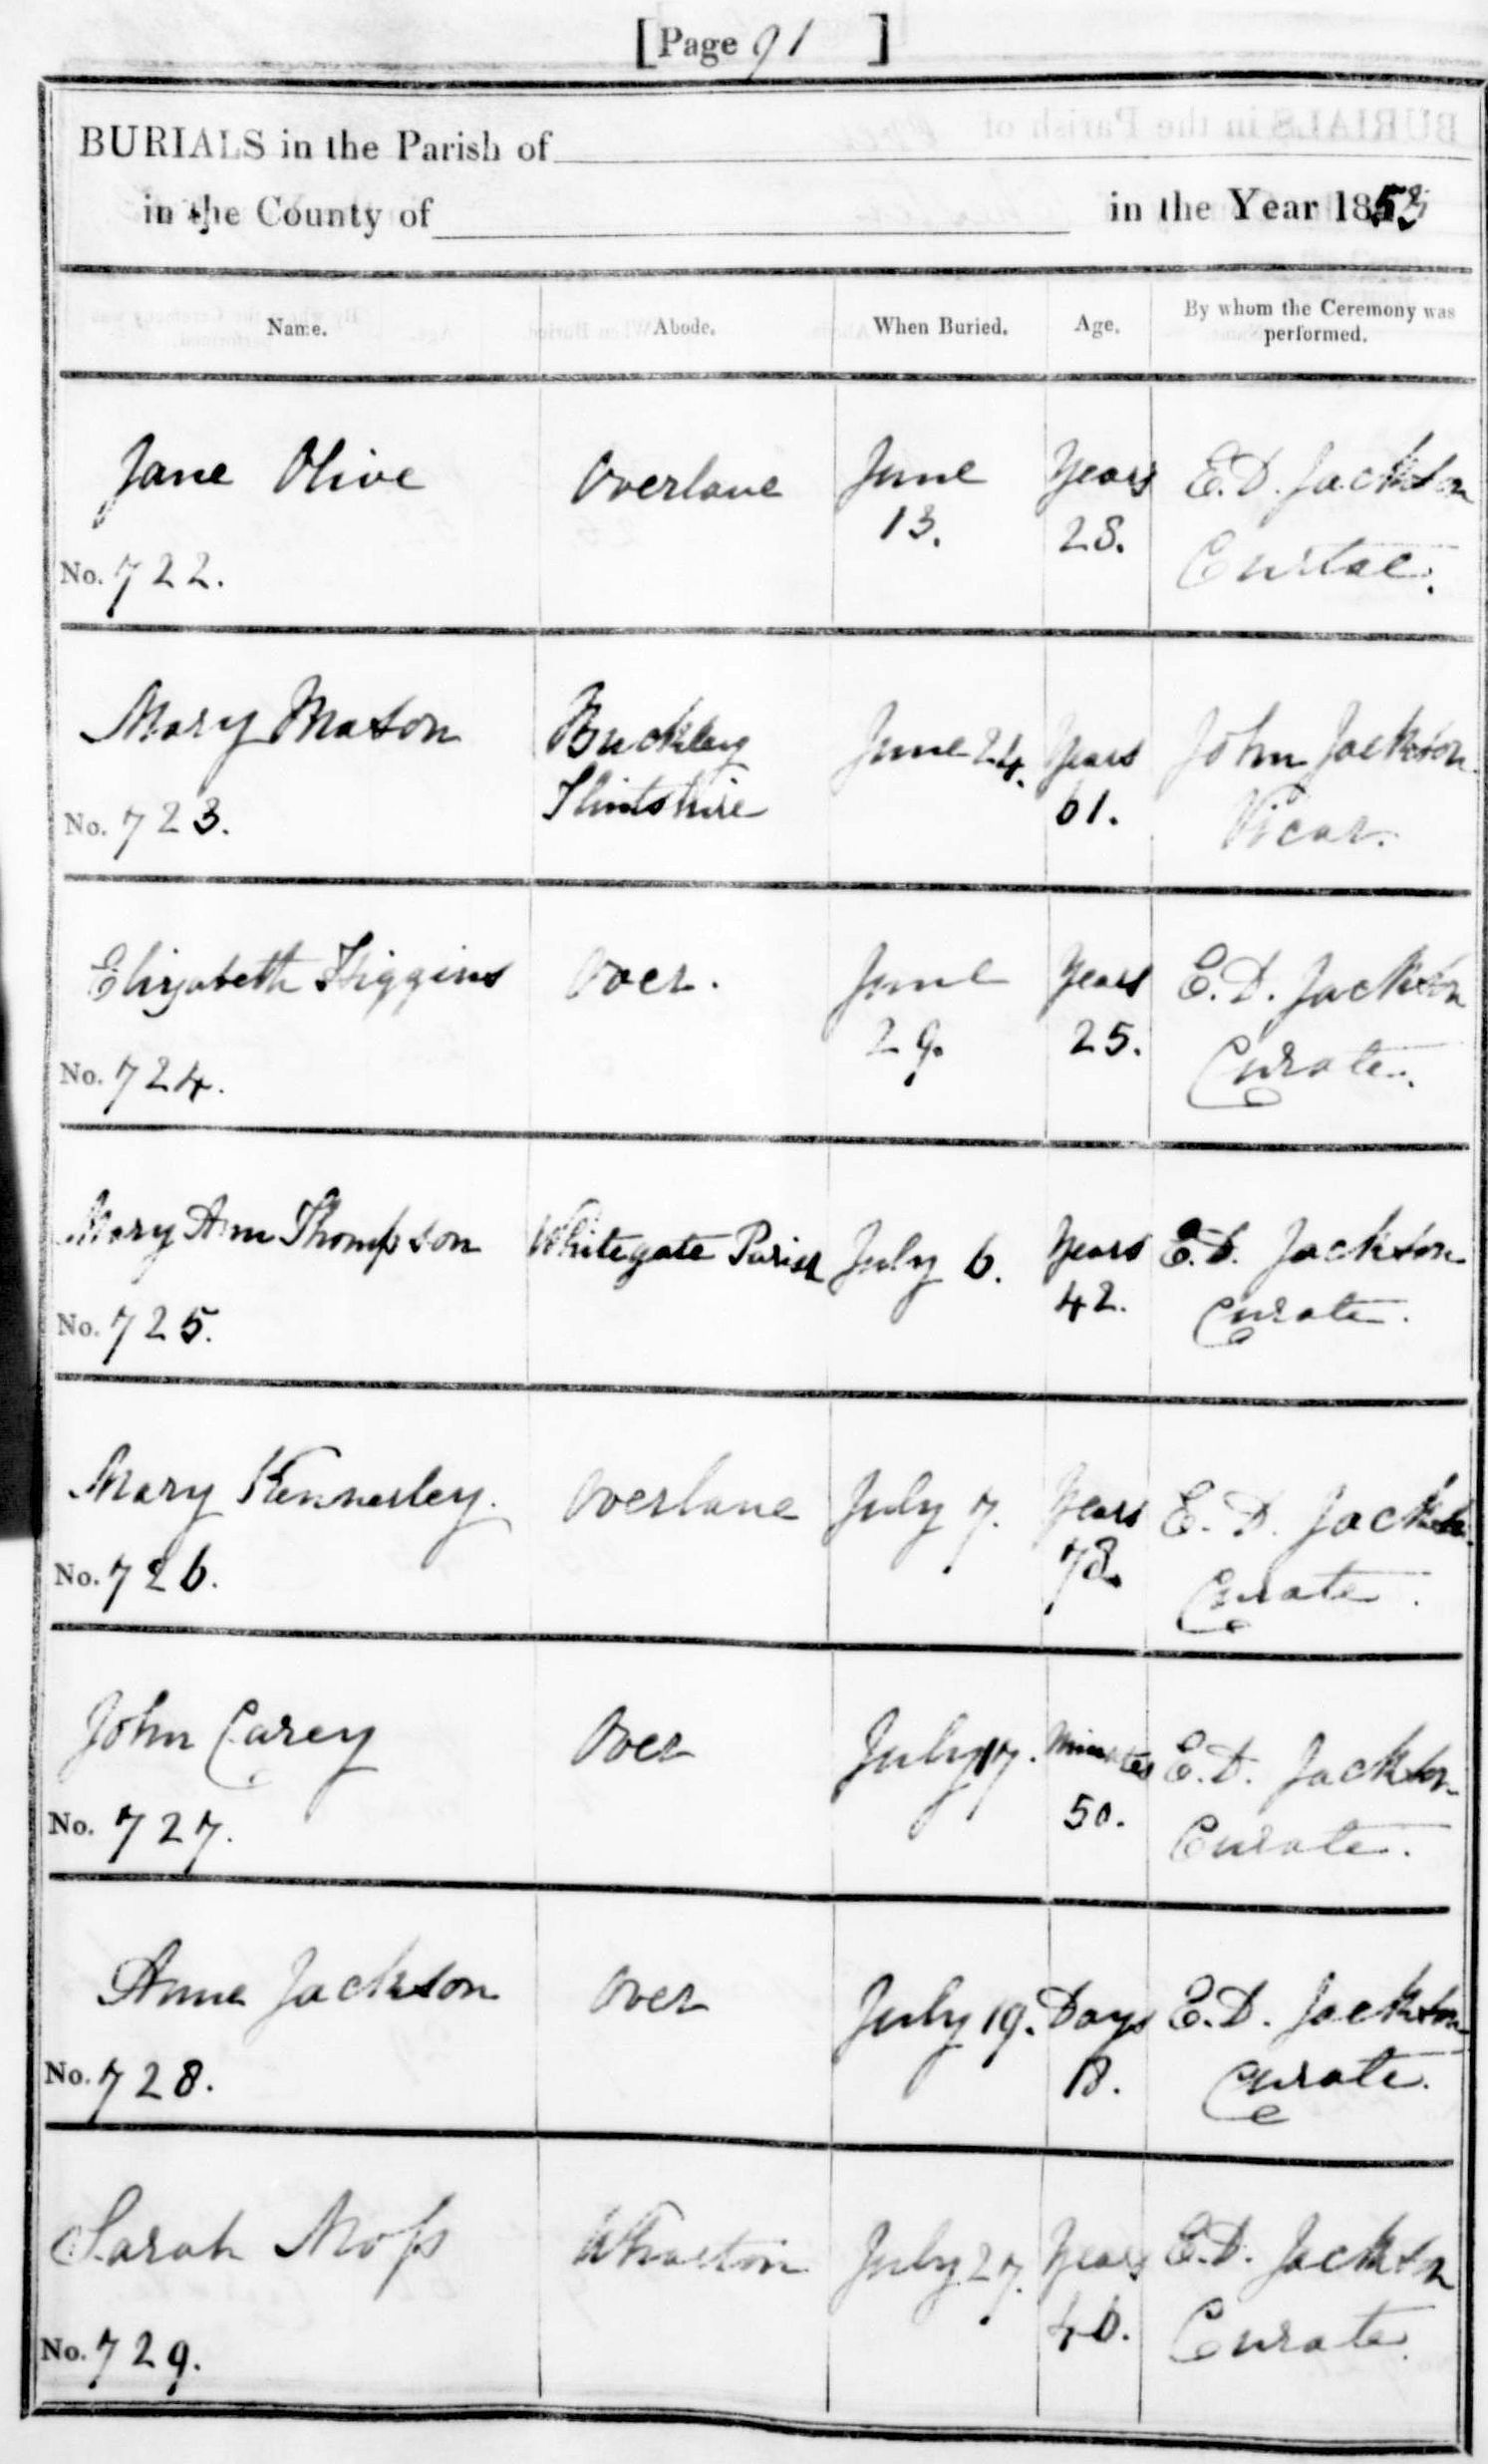 [Page 91 ]
BURIALS in the Parish of
in the County of in the Year 1853
Name. Abode. When Buried. Age. By whom the Ceremony was performed.
Jane Olive Overlane June 13. Years 28. E. D. Jackson Curtae.
No. 722.
Mary Mason Buckley Flintshire June 24. Years 61. John Jackson Vicar.
No. 723.
Elizabeth Higgins Over. June 29. Years 25. E. D. Jackson Curate.
No. 724.
Mary Ann Thompson Whitegate Parish July 6. Years 42. E. D. Jackson Curate.
No. 725.
Mary Kennerley. Overlane July 7. Years 78. E. D. Jackson Curate.
No. 726.
John Carey Over July 17. Minutes 50. E. D. Jackson Curate.
No. 727.
Anne Jackson Over July 19. Days 18. E. D. Jackson Curate.
No. 728.
Sarah Moss Wharton July 27. Years 46. E. D. Jackson Curate.
No. 729.